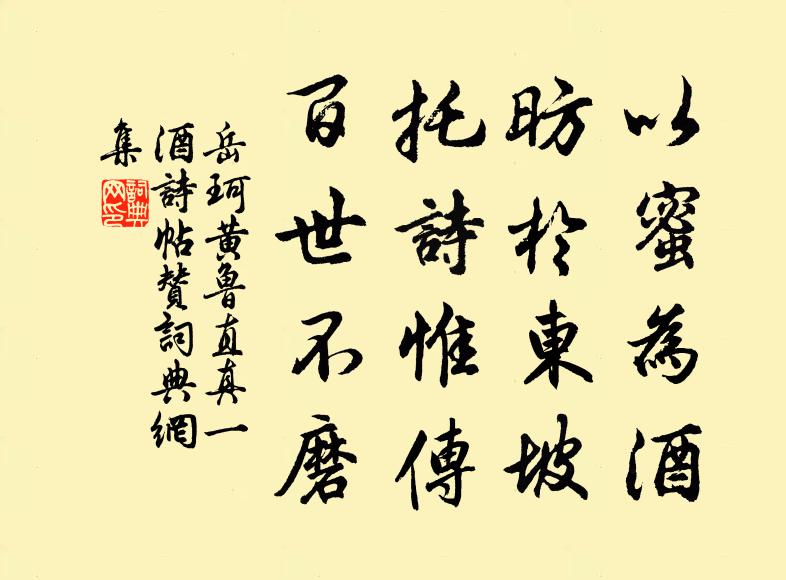 以蜜為酒
昉於東坡
托詩惟傳
百世不磨
岳珂黄魯直真一
酒詩帖贊詞典網
集
詞典
网印